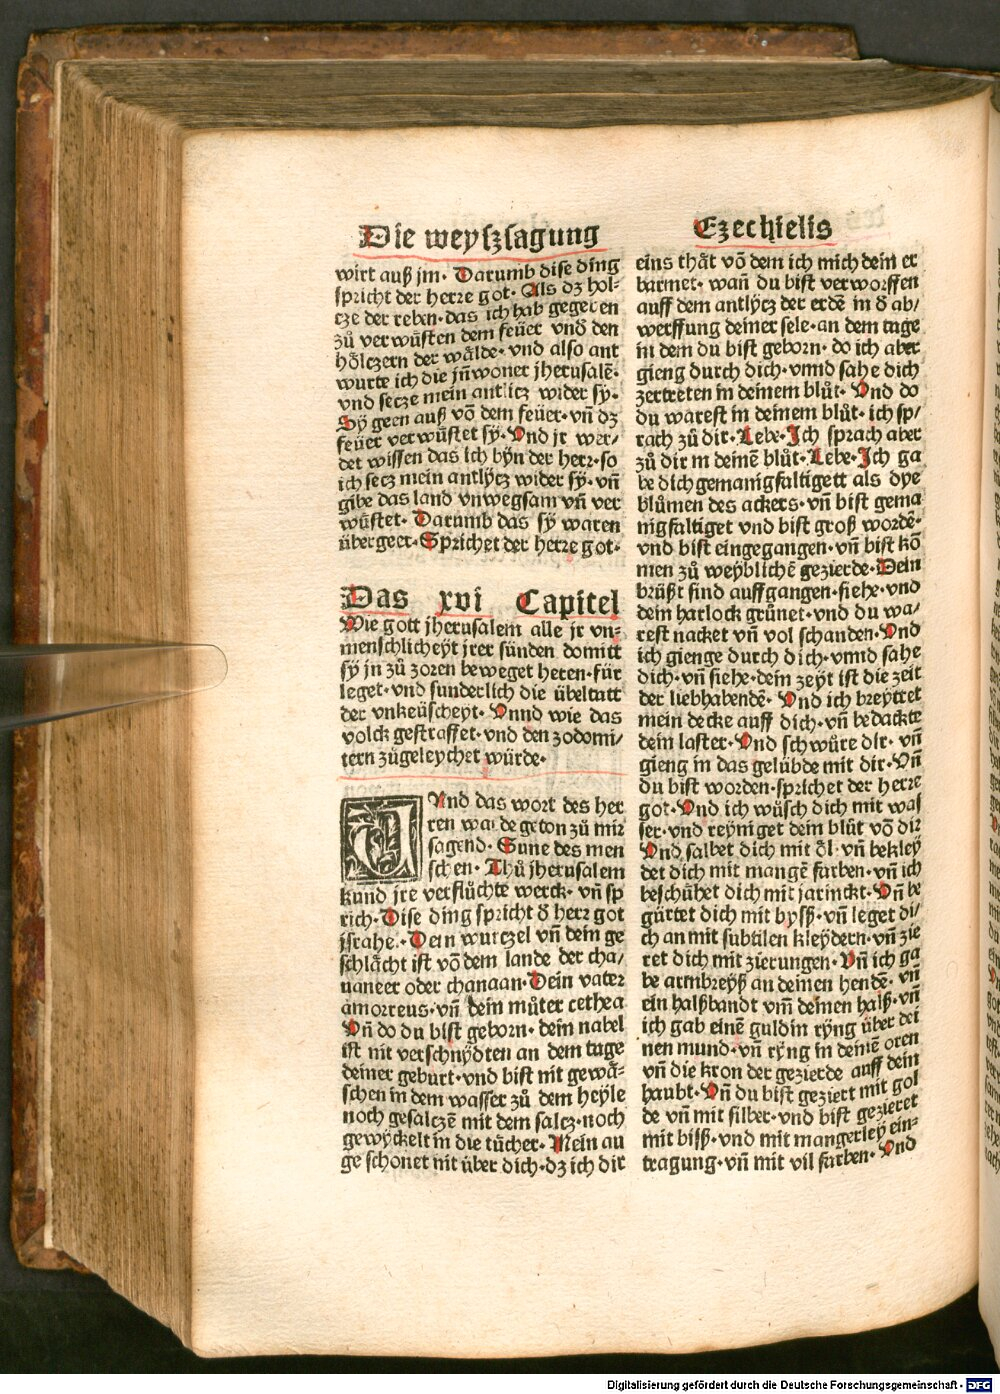 Die weyſzſagung
wirt auß jm. Darumb diſe ding
ſpricht der herre got. Als dz hol⸗
cze der reben. das ich hab gegeben
zů verwu̇ſten dem feüer vnd den
hölczern der wälde. vnd alſo ant
wurte ich die jn̄woner jherusalē.
vnd ſecze mein antlicz wider ſy.
Sÿ geen auß vō dem feüer. vn̄ dz
feüer verwüſtet ſÿ. Vnd jr wer/
det wiſſen das ich bÿn der herr. ſo
ich ſecz mein antlÿcz wider ſÿ. vn̄
gibe das land vnwegſam vn̄ ver
wüſtet. Darumb das ſÿ waren
übergeer. Sprichet der herre got.
Das xvi Capitel
Wie gott jheruſalem alle jr vn⸗
menſchlicheÿt jrer ſünden domitt
ſÿ jn zů zoren beweget heten. für
leget. vnd ſunderlich die übeltatt
der vnkeüſcheyt. Vnnd wie das
volck geſtraffet. vnd den zodomi/
tern zůgeleychet würde.
UVnd das wort des her
ren war de geton zů mir
ſagend. Sune des men
ſchen. Thů jheruſalem
kund jre verflůchte werck. vn̄ ſp
rich. Diſe ding ſpricht d̄ herr got
jſrahel. Dein wurczel vn̄ dein ge
ſchlächt iſt vō dem lande der cha/
naneer oder chanaan. Dein vater
amorreus. vn̄ dein můter cethea
Vn̄ do du biſt geborn. dein nabel
iſt nit verſchnÿdten an dem tage
deiner geburt. vnd biſt nit gewä⸗
ſchen in dem waſſer zů dem heyle
noch geſalczē mit dem ſalcz. noch
gewÿckelt in die tücher. Mein au
ge ſchonet nit über dich. dz ich dir
Ezechielis
eins thät vō dem ich mich dein er
barmet. wan̄ du biſt verworffen
auff dem antlÿcz der erdē in d̄ ab/
werffung deiner ſele. an dem tage
in dem du biſt geborn. do ich aber
gieng durch dich. vnnd ſahe dich
zertreten in deinem blůt. Vnd do
du wareſt in deinem blůt. ich ſp/
rach zů dir. Lebe. Ich ſprach aber
zů dir in deinē blůt. Lebe. Ich ga
be dich gemanigfaltigett als dye
blůmen des ackers. vn̄ biſt gema
nigfaltiget vnd biſt groß wordē.
vnd biſt eingegangen. vn̄ biſt kō
men zů weÿblichē gezierde. Dein
brüſt ſind auffgangen. ſiehe. vnd
dein harlock grünet. vnd du wa/
reſt nacket vn̄ vol ſchanden. Vnd
ich gienge durch dich. vnnd ſahe
dich. vn̄ ſiehe. dein zeyt iſt die zeit
der liebhabendē. Vnd ich breyttet
mein decke auff dich. vn̄ bedackte
dein laſter. Vnd ſchwüre dir. vn̄
gieng in das gelübde mit dir. Vn̄
du biſt worden. ſprichet der herre
got. Vnd ich wůſch dich mit waſ
ſer. vnd reyniget dein blůt vō dir
Vnd ſalbet dich mit öl. vn̄ bekley
det dich mit mangē farben. vn̄ ich
beſchůhet dich mit jarinckt. Vn̄ be
gürtet dich mit byſſz. vn̄ leget di/
ch an mit ſubtilen kleydern. vn̄ zie
ret dich mit zierungen. Vn̄ ich ga
be armbreyß an deinen hendē. vn̄
ein halßbandt vm̄ deinen halß. vn̄
ich gab einē guldin rÿng über dei
nen mund. vn̄ rÿng in deinē oren
vn̄ die kron der gezierde auff dein
haubt. Vn̄ du biſt geziert mit gol
de vn̄ mit ſilber. vnd biſt gezieret
mit biſſz. vnd mit mangerley ein⸗
tragung. vn̄ mit vil farben. Vnd
Digitalisierung gefördert durch die Deutsche Forschungsgemeinschaft - DFG